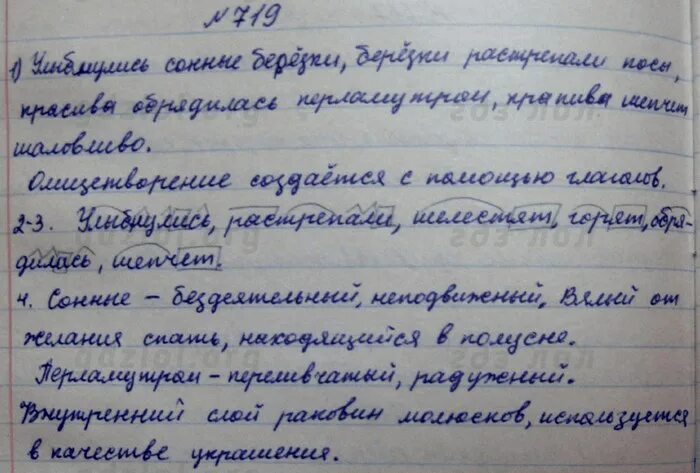 №719
1) Улыбнулись сонные берёзки, берёзки растрепали косы,
крапива обрядилась перламутром, крапива шепчет
шаловливо.
Олицетворение создаётся с помощью глаголов.
2-3. Улыбнулись, растрепали, шелестят, горят, обря-
дилась, шепчет.
4. Сонные – бездеятельный, неподвижный, вялый от
желания спать, находящийся в полусне.
Перламутром – переливчатый, радужный.
Внутренний слой раковин молюсков, используется
в качестве украшения.